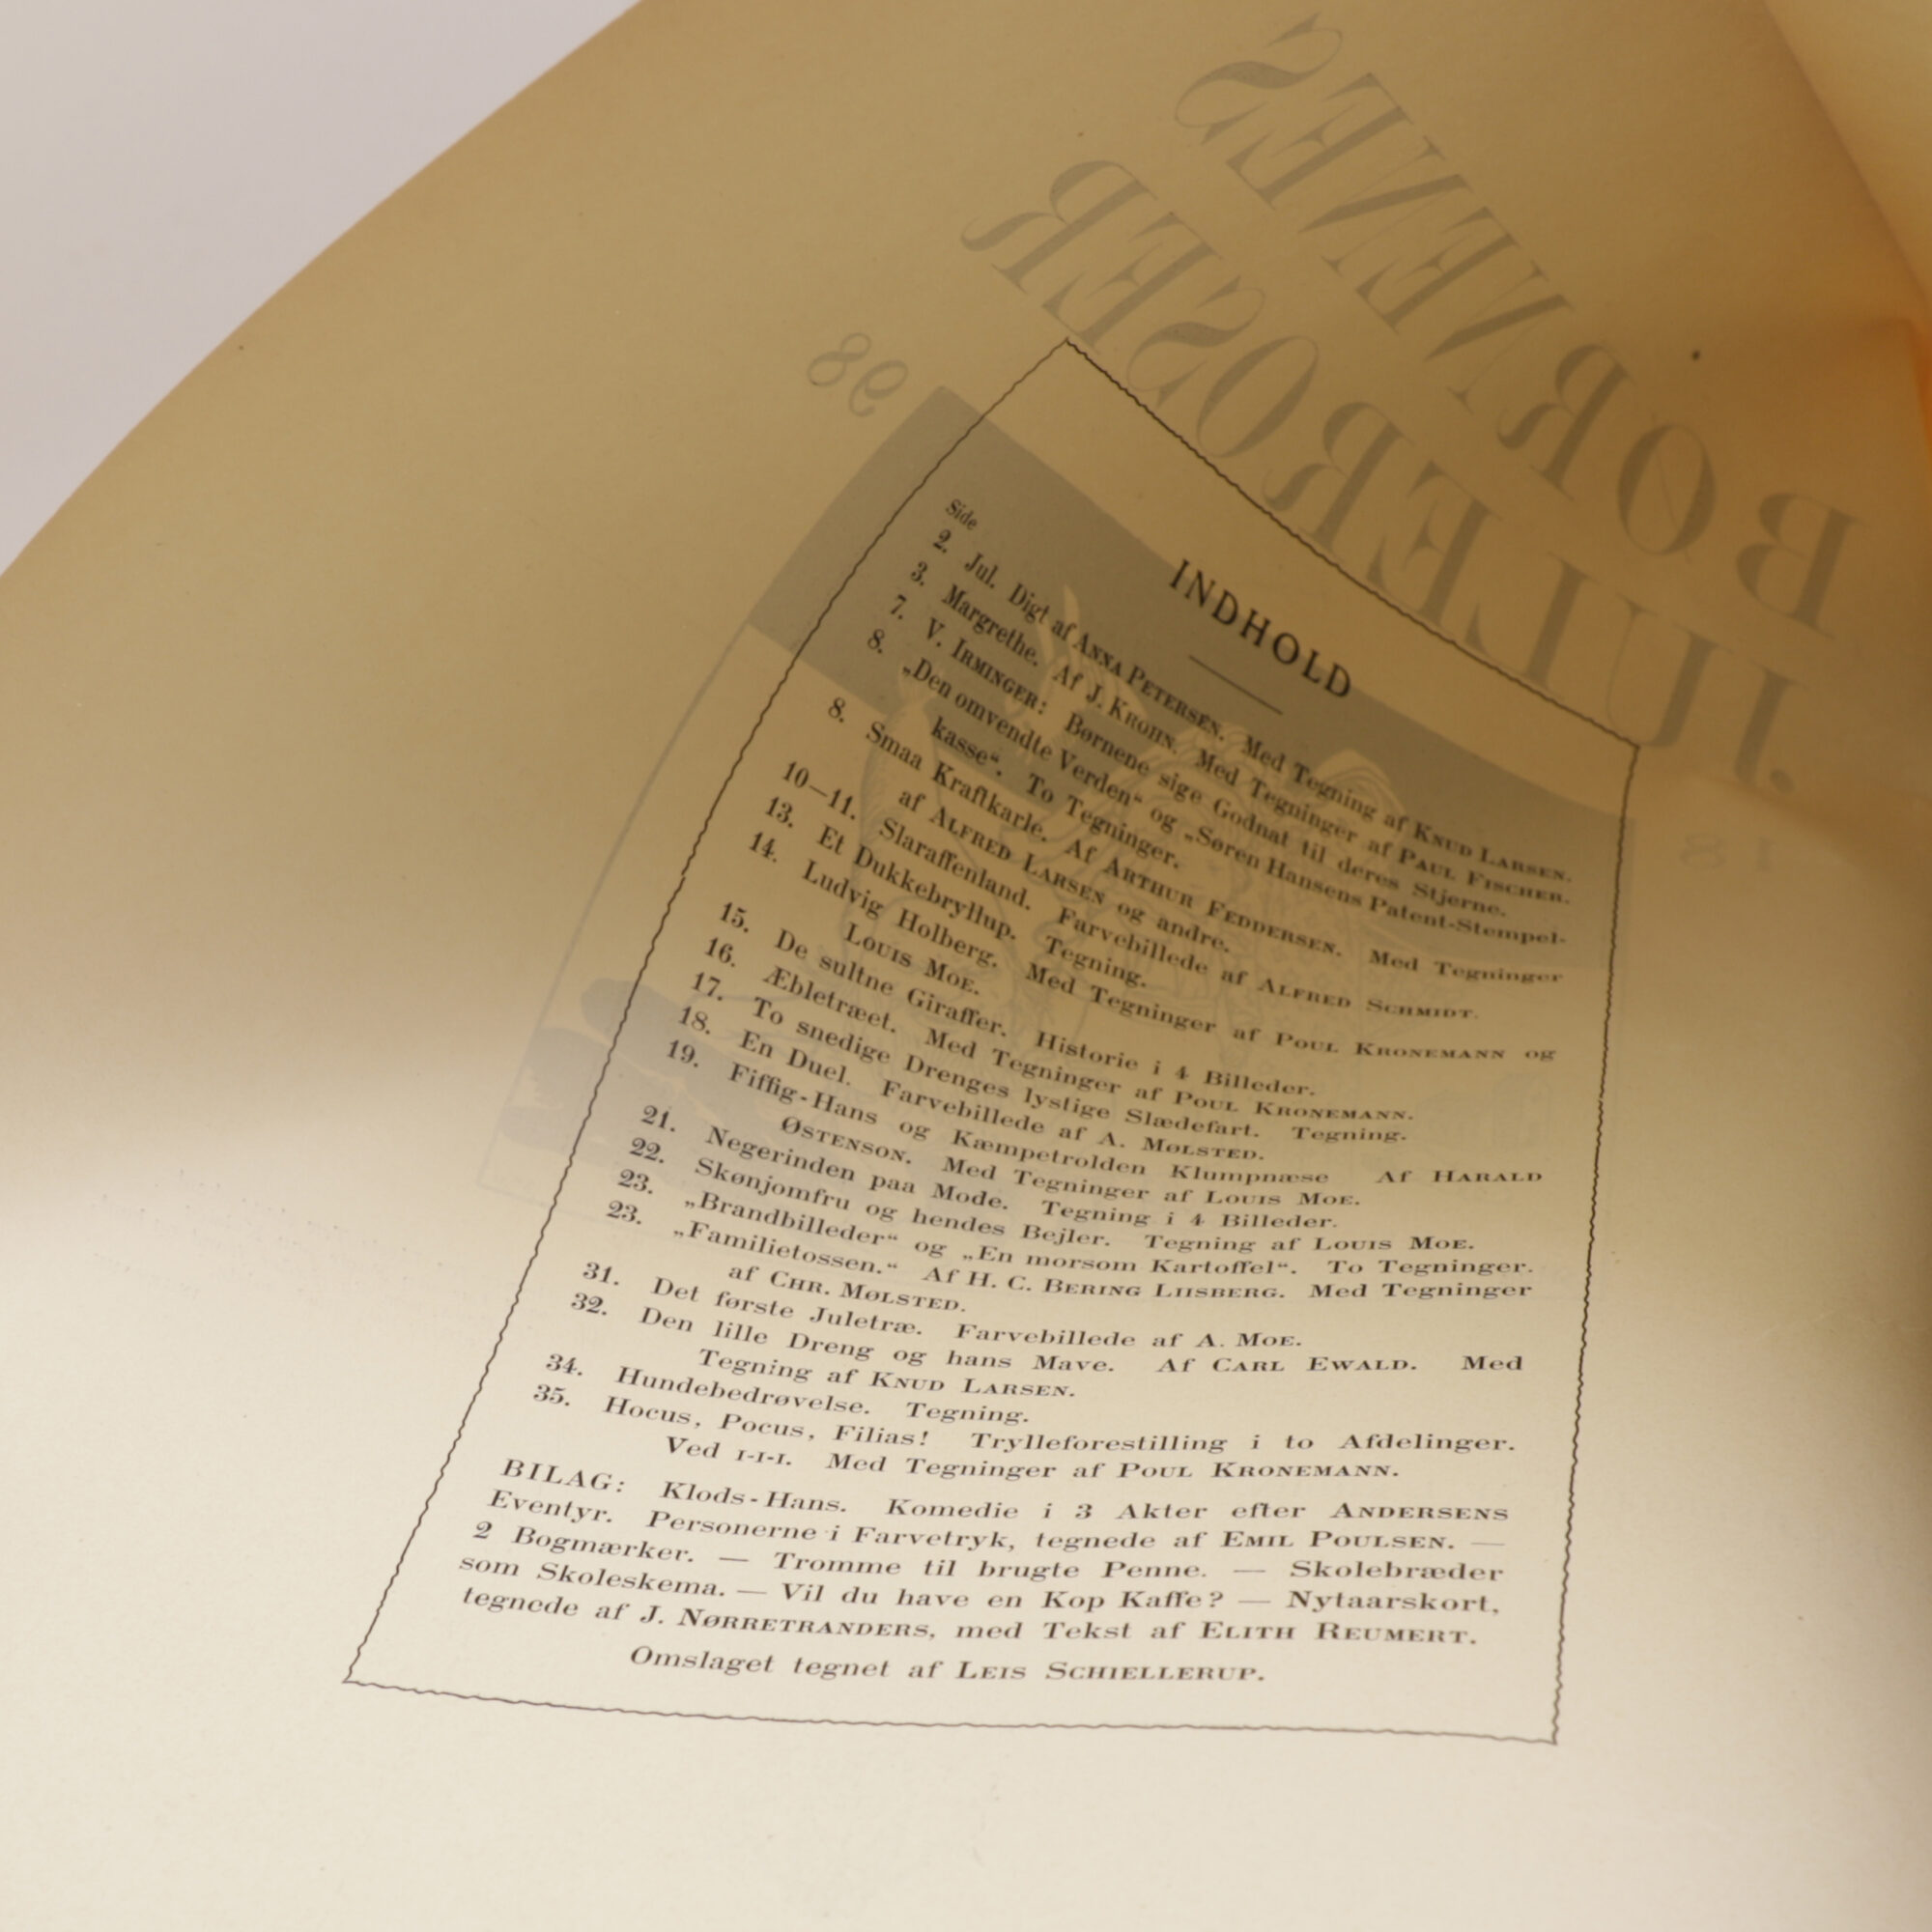 BØRNENES
JULEROSER
18
98
INDHOLD
Side
2. Jul. Digt af ANNA PETERSEN. Med Tegning af KNUD LARSEN.
3. Margrethe. Af J. KROHN. Med Tegninger af PAUL FISCHER.
7. V. IRMINGER: Børnene sige Godnat til deres Stjerne.
8. „Den omvendte Verden“ og „Søren Hansens Patent-Stempel-
kasse“. To Tegninger.
8. Smaa Kraftkarle. Af ARTHUR FEDDERSEN. Med Tegninger
af ALFRED LARSEN og andre.
10—11. Slaraffenland. Farvebillede af ALFRED SCHMIDT.
13. Et Dukkebryllup. Tegning.
14. Ludvig Holberg. Med Tegninger af POUL KRONEMANN og
LOUIS MOE.
15. De sultne Giraffer. Historie i 4 Billeder.
16. Æbletræet. Med Tegninger af POUL KRONEMANN.
17. To snedige Drenges lystige Slædefart. Tegning.
18. En Duel. Farvebillede af A. MØLSTED.
19. Fiffig-Hans og Kæmpetrolden Klumpnæse Af HARALD
ØSTENSON. Med Tegninger af LOUIS MOE.
21. Negerinden paa Mode. Tegning i 4 Billeder.
22. Skønjomfru og hendes Bejler. Tegning af LOUIS MOE.
23. „Brandbilleder“ og „En morsom Kartoffel“. To Tegninger.
23. „Familietossen.“ Af H. C. BERING LIISBERG. Med Tegninger
af CHR. MØLSTED.
31. Det første Juletræ. Farvebillede af A. MOE.
32. Den lille Dreng og hans Mave. Af CARL EWALD. Med
Tegning af KNUD LARSEN.
34. Hundebedrøvelse. Tegning.
35. Hocus, Pocus, Filias! Trylleforestilling i to Afdelinger.
Ved I-I-I. Med Tegninger af POUL KRONEMANN.
BILAG: Klods-Hans. Komedie i 3 Akter efter ANDERSENS
Eventyr. Personerne i Farvetryk, tegnede af EMIL POULSEN. —
2 Bogmærker. — Tromme til brugte Penne. — Skolebræder
som Skoleskema. — Vil du have en Kop Kaffe? — Nytaarskort,
tegnede af J. NØRRETRANDERS, med Tekst af ELITH REUMERT.
Omslaget tegnet af LEIS SCHIELLERUP.